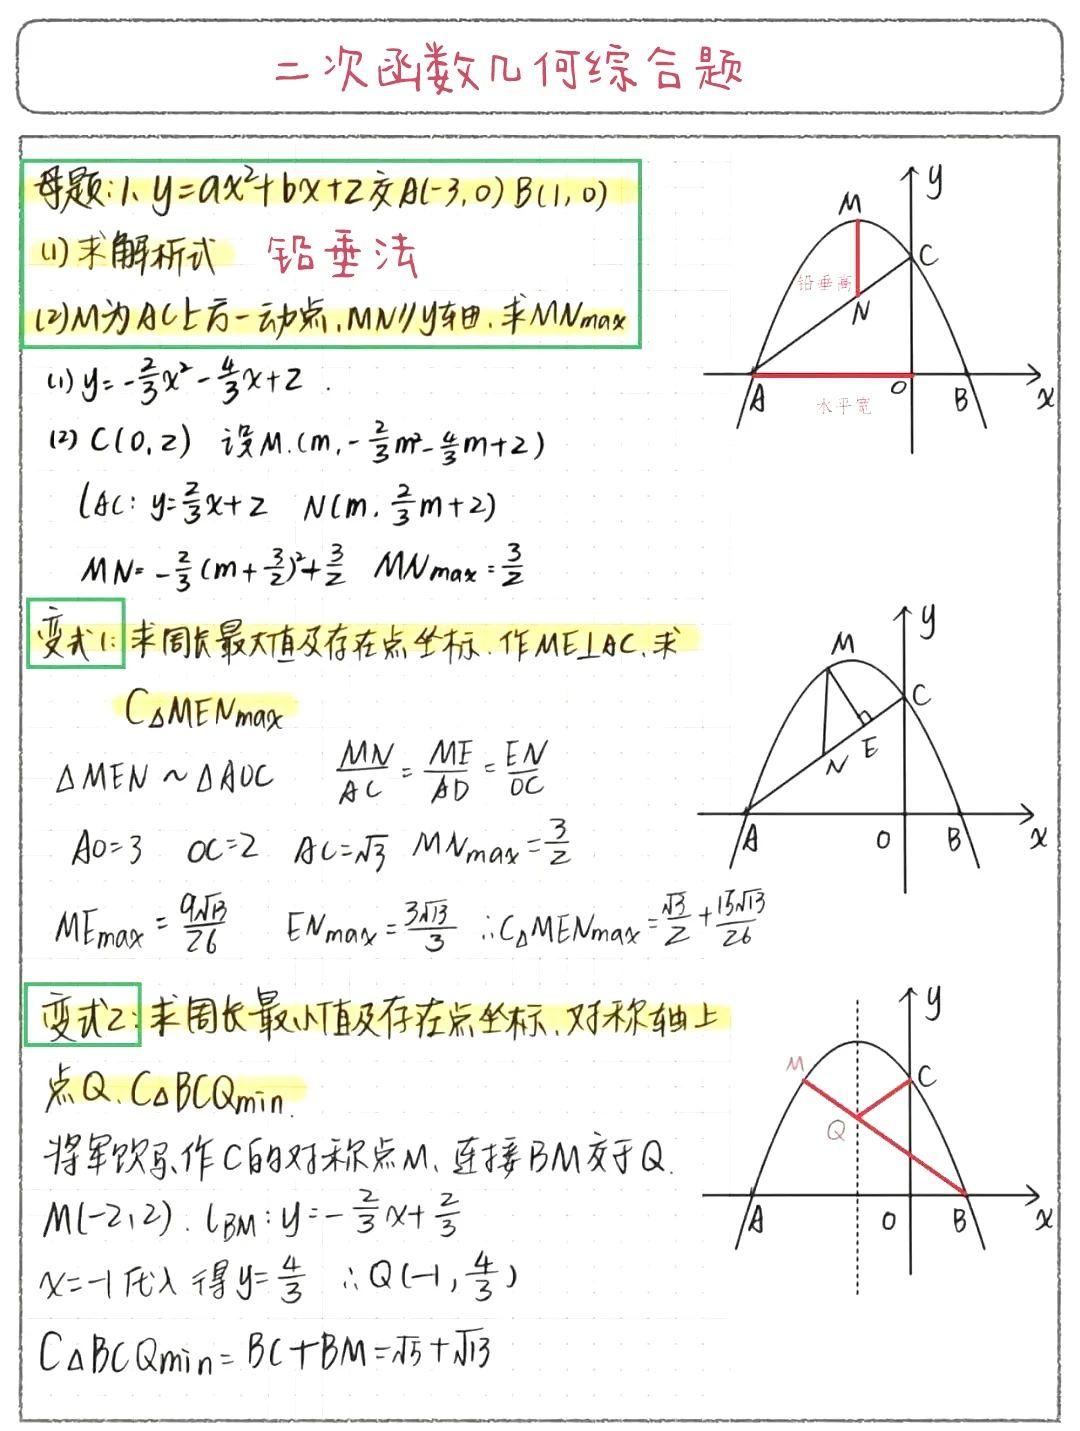 二次函数几何综合题
母题:1、y=ax²+bx+2交A(-3,0)B(1,0)
(1)求解析式 铅垂法
(2)M为AC上方一动点,MN//y轴,求MNmax
(1) y=-2/3x²-4/3x+2.
(2) C(0,2) 设M.(m,-2/3m²-4/3m+2)
lAC: y=2/3x+2 N(m,2/3m+2)
MN=-2/3(m+3/2)²+3/2 MNmax=3/2
M
y
C
铅垂高
N
A
O
水平宽
B
x
变式1:求周长最大值及存在点坐标.作ME⊥AC,求
C△MENmax
△MEN~△AOC MN/AC=ME/AO=EN/OC
AO=3 OC=2 AC=√3 MNmax=3/2
MEmax=9√13/26 ENmax=3√13/3 ∴C△MENmax=√3/2+15√13/26
M
y
C
N
E
A
O
B
x
变式2:求周长最小值及存在点坐标、对称轴上
点Q、C△BCQmin.
将军饮马,作C的对称点M、连接BM交于Q.
M(-2,2). lBM:y=-2/3x+2/3
x=-1代入得y=4/3 ∴Q(-1,4/3)
C△BCQmin=BC+BM=√5+√13
y
M
C
Q
A
O
B
x